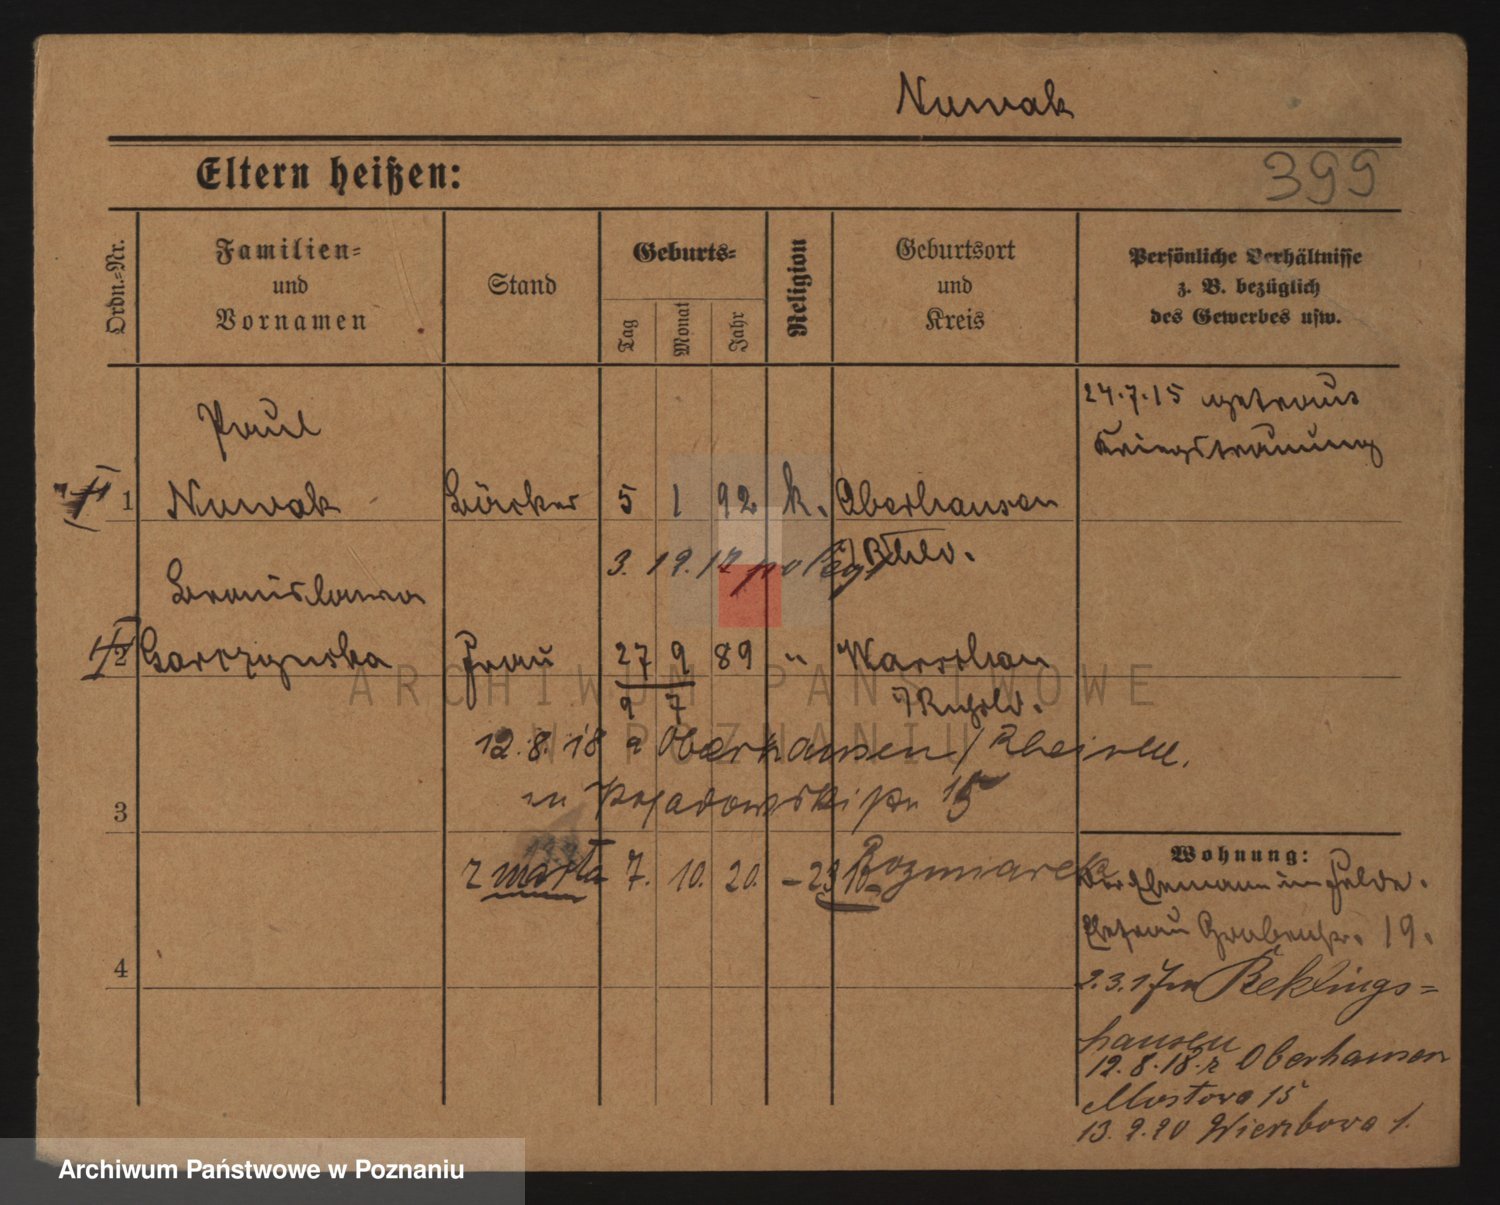 Nowak
Eltern heißen:
399
Ordn.=Nr.
Familien=
und
Vornamen
Stand
Geburts=
Tag
Monat
Jahr
Religion
Geburtsort
und
Kreis
Persönliche Verhältnisse
z. B. bezüglich
des Gewerbes usw.
24.7.15 getraut
Kriegstrauung
Paul
1 Nowak Bäcker 5 1 92 k. Oberhausen
Bronislawa
2 Garczynska Frau 27 9 89 " Warschau
9 7
12.8.18 Oberhausen / Rheinld.
15
3
Marta 7. 10. 20. – 29 10 Rozmiarek
4
Wohnung:
Der Ehemann im Felde.
Ehefrau Grabenstr. 19.
2.3.17 Reklings=
hausen
12.8.18 Oberhausen
Mostowa 15
13.2.20 Wierzbowa 1.
ARCHIWUM PAŃSTWOWE
W POZNANIU
Archiwum Państwowe w Poznaniu